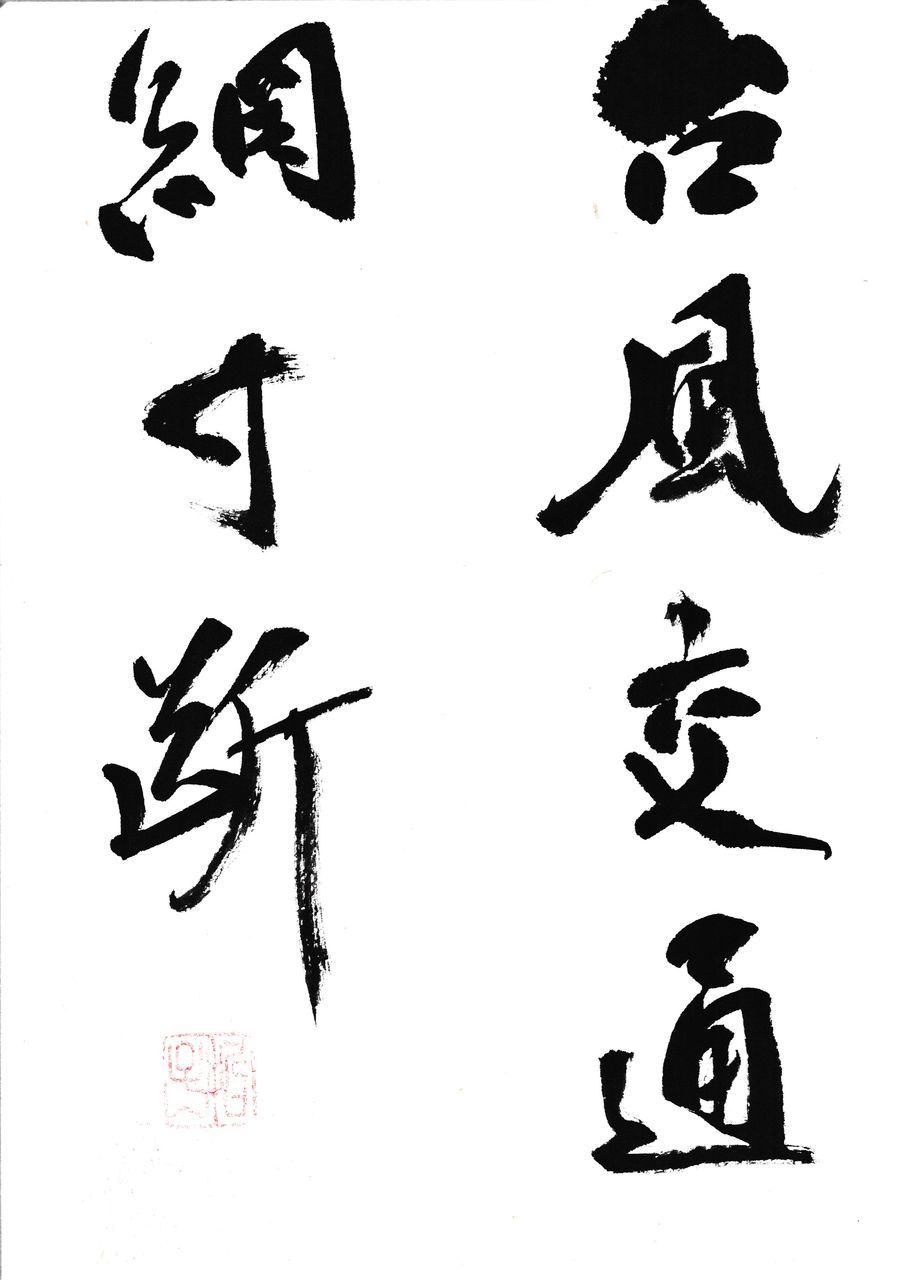 台風交通
網寸断